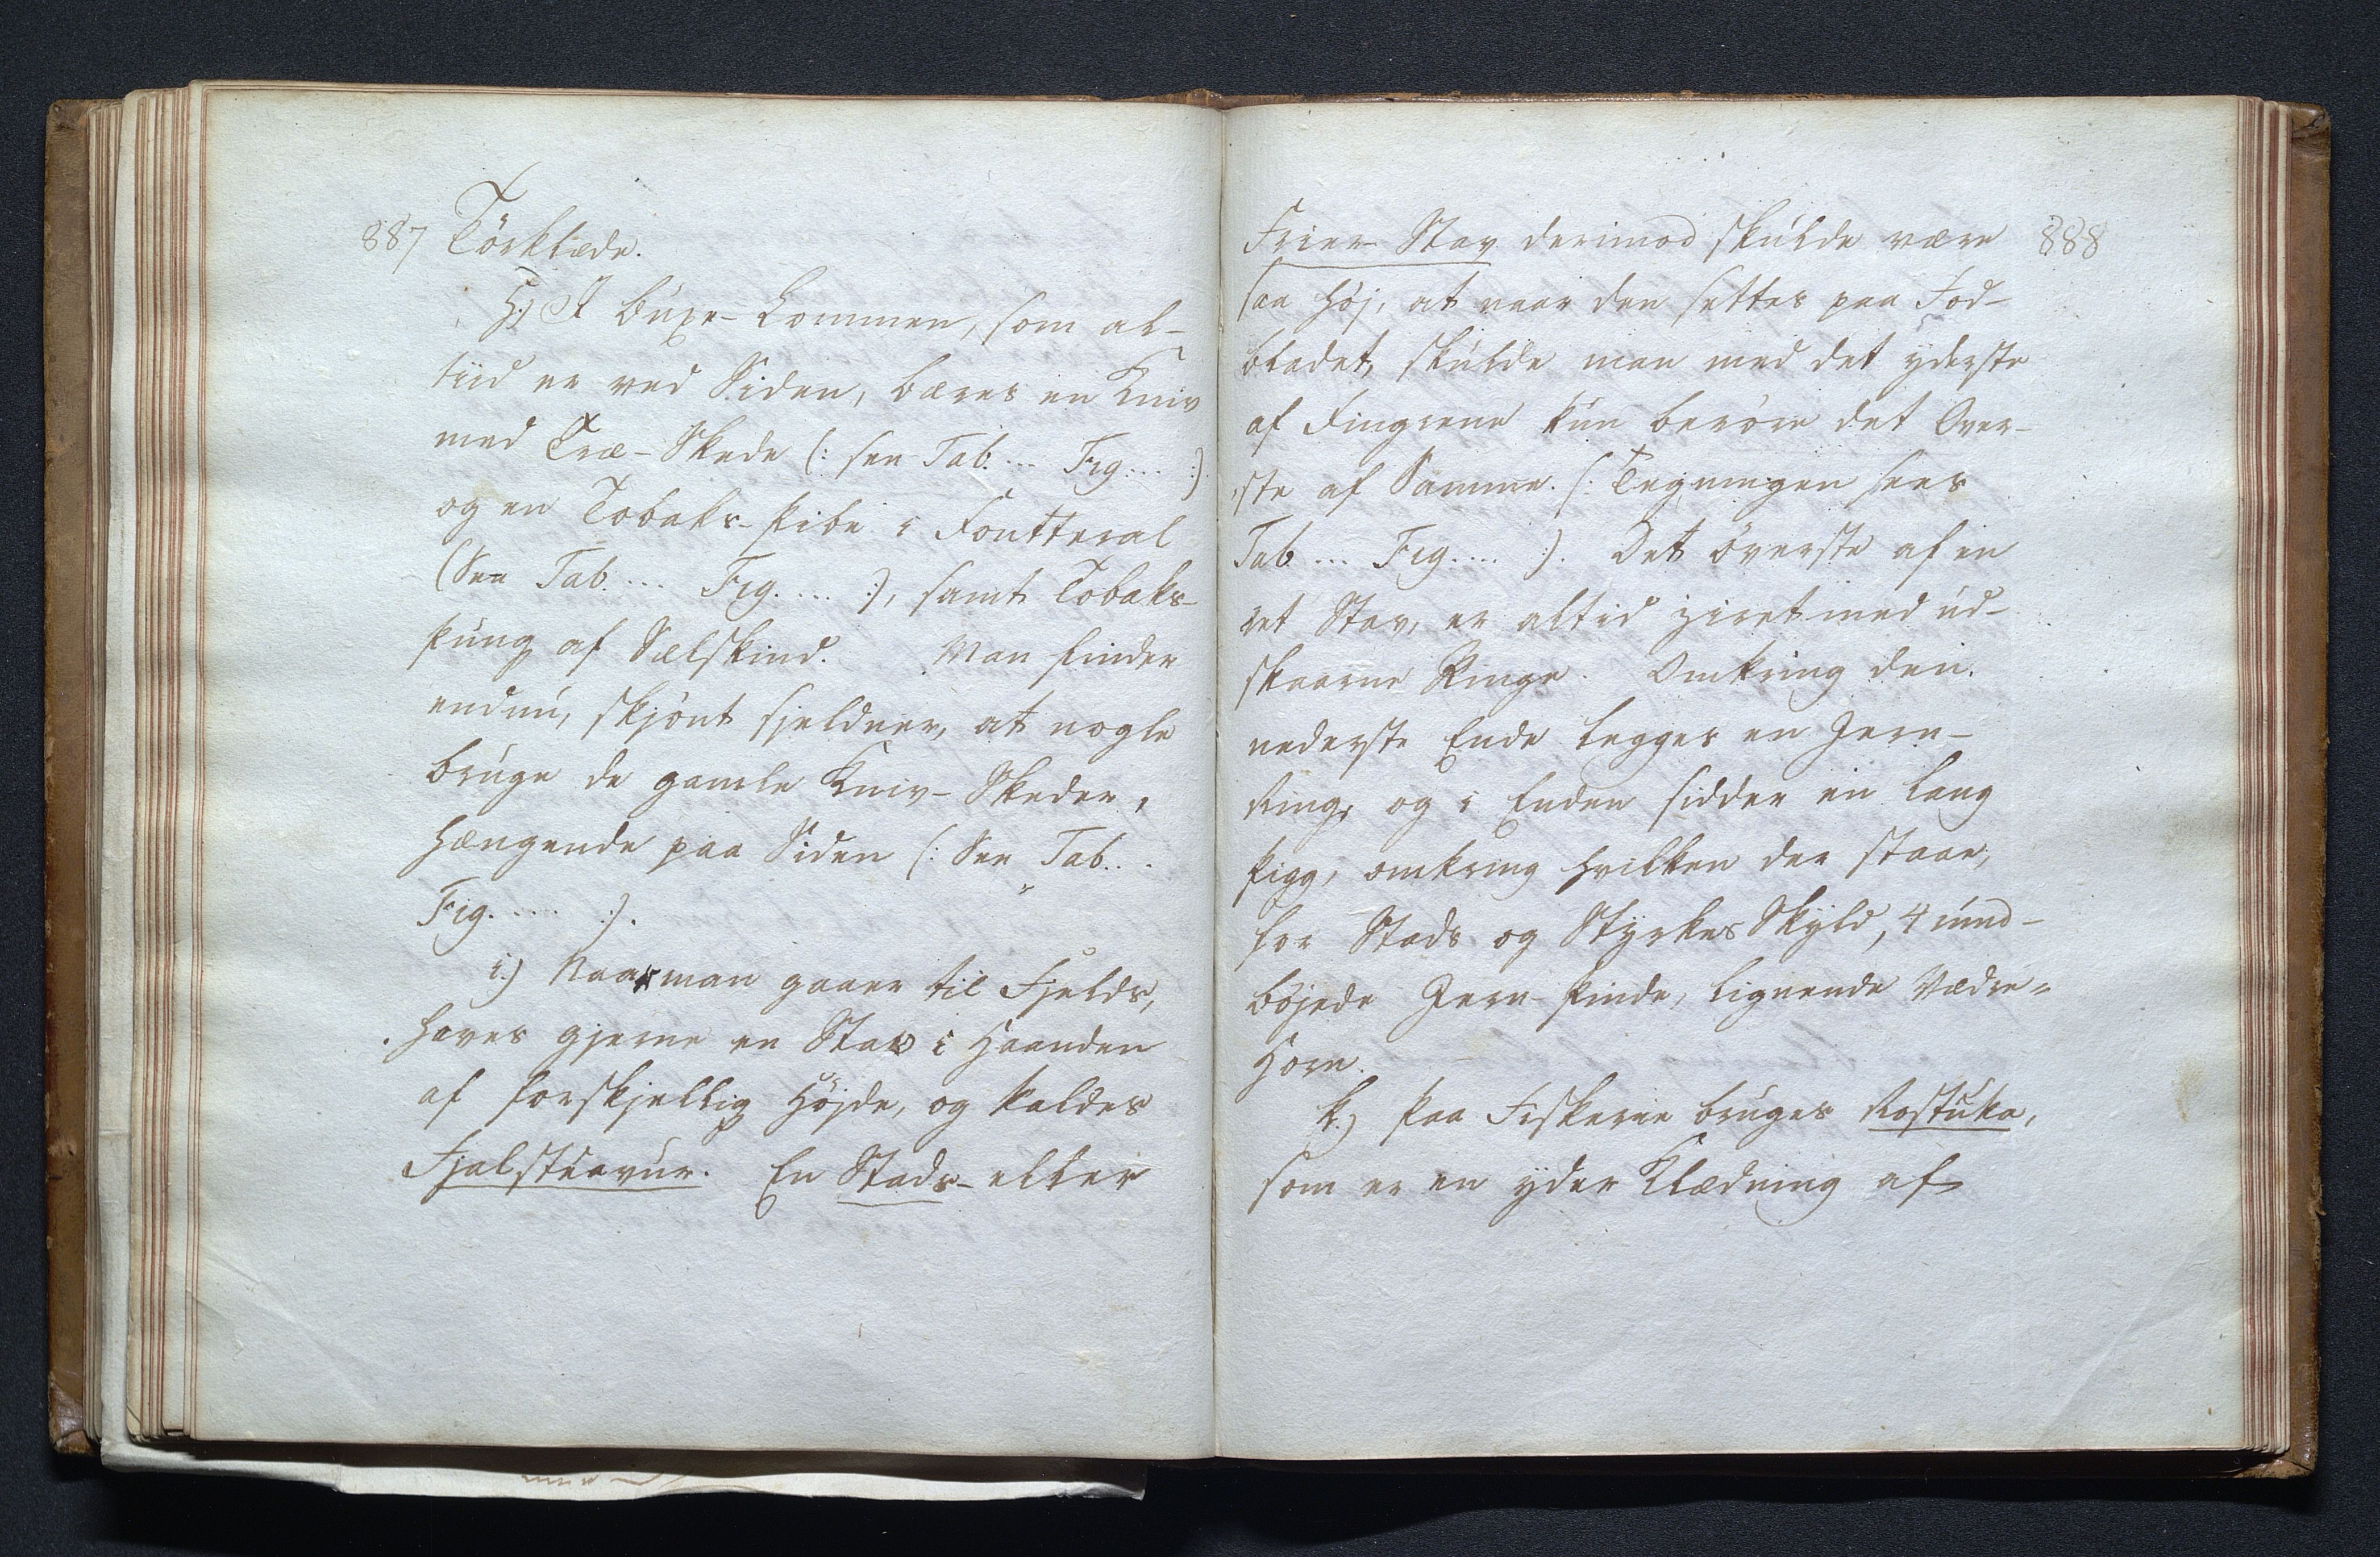 887 Törklæde.
H.) I Buxe-Lommen, som al-
tiid er ved Siden, bæres en Kniv
med Træ-Skede (: see Tab. ... Fig. ... :)
og en Tobaks-Pibe i Foutteral
(See Tab. ... Fig. .... :), samt Tobaks-
Pung af Sælskind. Man finder
endnu, skjönt sjeldner, at nogle
bruge de gamle Kniv-Skeder,
hængende paa Siden (: See Tab...
Fig. .... :).
i.) Naar man gaaer til Fjelds,
haves gjerne en Stav i Haanden
af forskjellig Höjde, og kaldes
Fjalstavur. En Stads- eller
Frier-Stav derimod skulde være 888
saa höj, at naar den settes paa Fod-
bladet, skulde man med det yderste
af Fingrene kun beröre det Över-
ste af Samme. (: Tegningen sees
Tab. ... Fig. .... :). Det överste af en
ret Stav, er altid ziret med ud-
skaarne Ringe. Omkring den
nederste Ende legges en Jern-
Ring, og i Enden sidder en lang
Pigg, omkring hvilken der staar,
for Stads og Styrkes Skyld, 4 ind-
böjede Jern-Pinde, lignende Vædre-
Horn.
k.) Paa Fiskerie bruges Rostuka,
som er en yder Klædning af